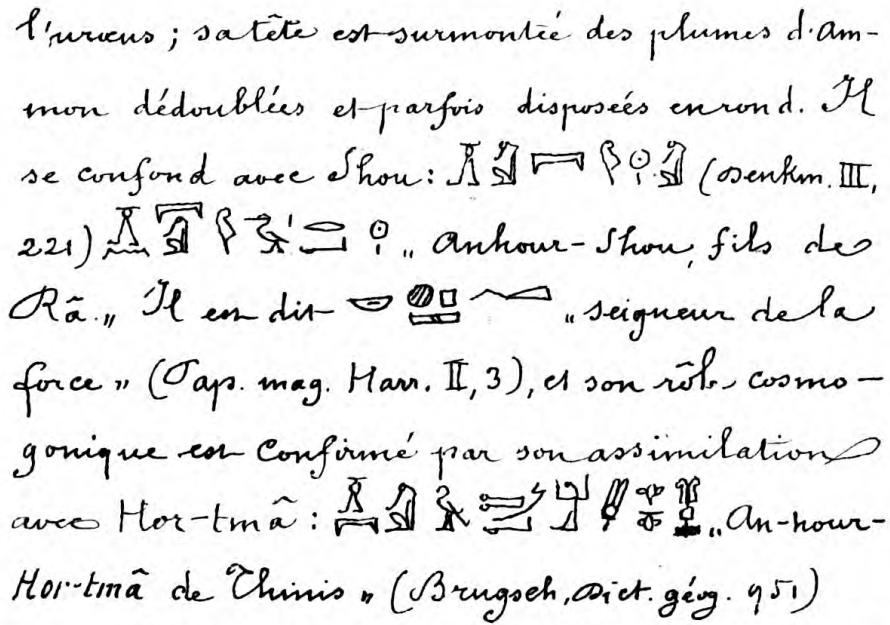 l'uræus ; sa tête est surmontée des plumes d'Am-
mon dédoublées et parfois disposées en rond. Il
se confond avec Shou: (Denkm. III,
221) „ Anhour-Shou, fils de
Râ „ Il est dit „ seigneur de la
force „ (Pap. mag. Harr. II, 3), et son rôle cosmo-
gonique est confirmé par son assimilation
avec Hor-tmâ : „ An-hour-
Hor-tmâ de Thinis „ (Brugsch, Dict. géog. 951)